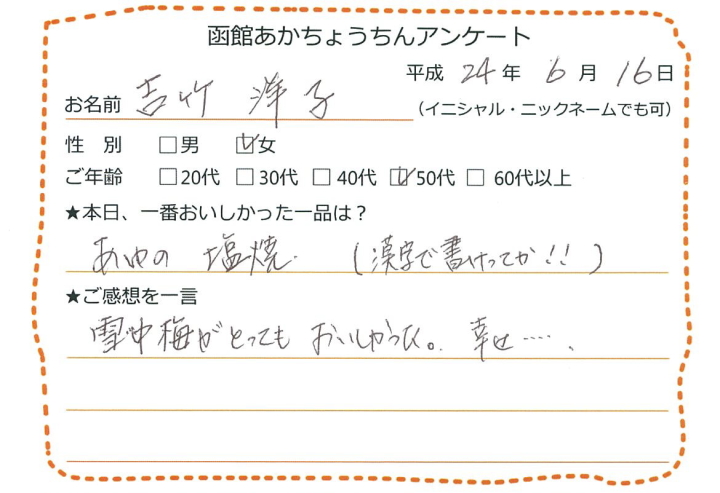 函館あかちょうちんアンケート
平成 24年 6月 16日
お名前 吉竹 洋子 (イニシャル・ニックネームでも可)
性 別 □男 ☑女
ご年齢 □20代 □30代 □40代 ☑50代 □60代以上
★本日、一番おいしかった一品は？
あゆの 塩焼. (漢字で書けってか!!)
★ご感想を一言
雪中梅がとっても おいしかった。幸せ……．